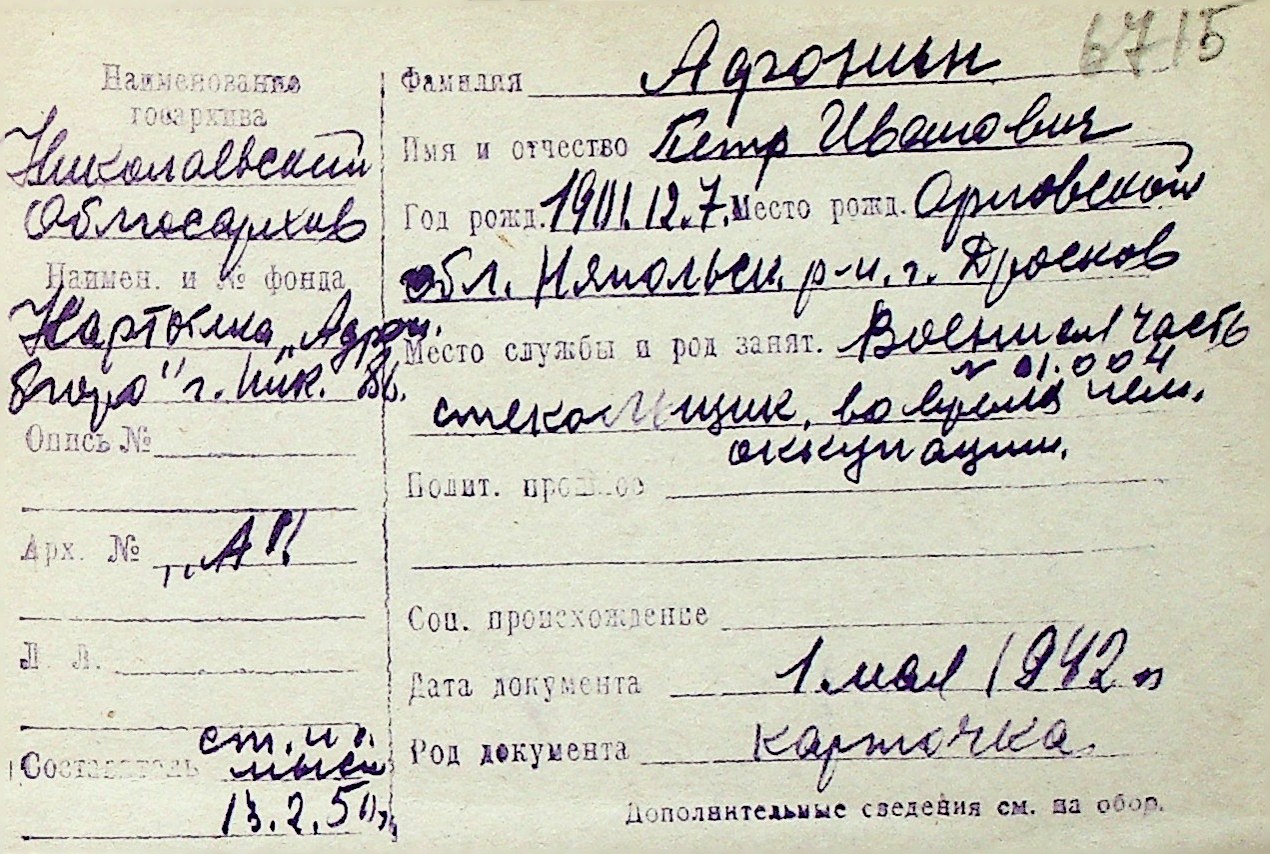 6715
Наименование
госархива
Николаевский
Облгосархив
Наимен. и № фонда
Картотека „Адресн.
бюро" г. Ник.
Опись №
Арх. № „А"
Л. Л.
Составитель ст. н.
13.2.50
Фамилия Адгонин
Имя и отчество Петр Иванович
Год рожд. 1901.12.7. Место рожд. Орловской
обл. р-н. г. Дросков
Место службы и род занят. Военная часть
№ 01.004
стекольщик, во время нем.
оккупации.
Полит. прошлое
Соц. происхождение
Дата документа 1 мая 1942 г
Род документа карточка
Дополнительные сведения см. на обор.